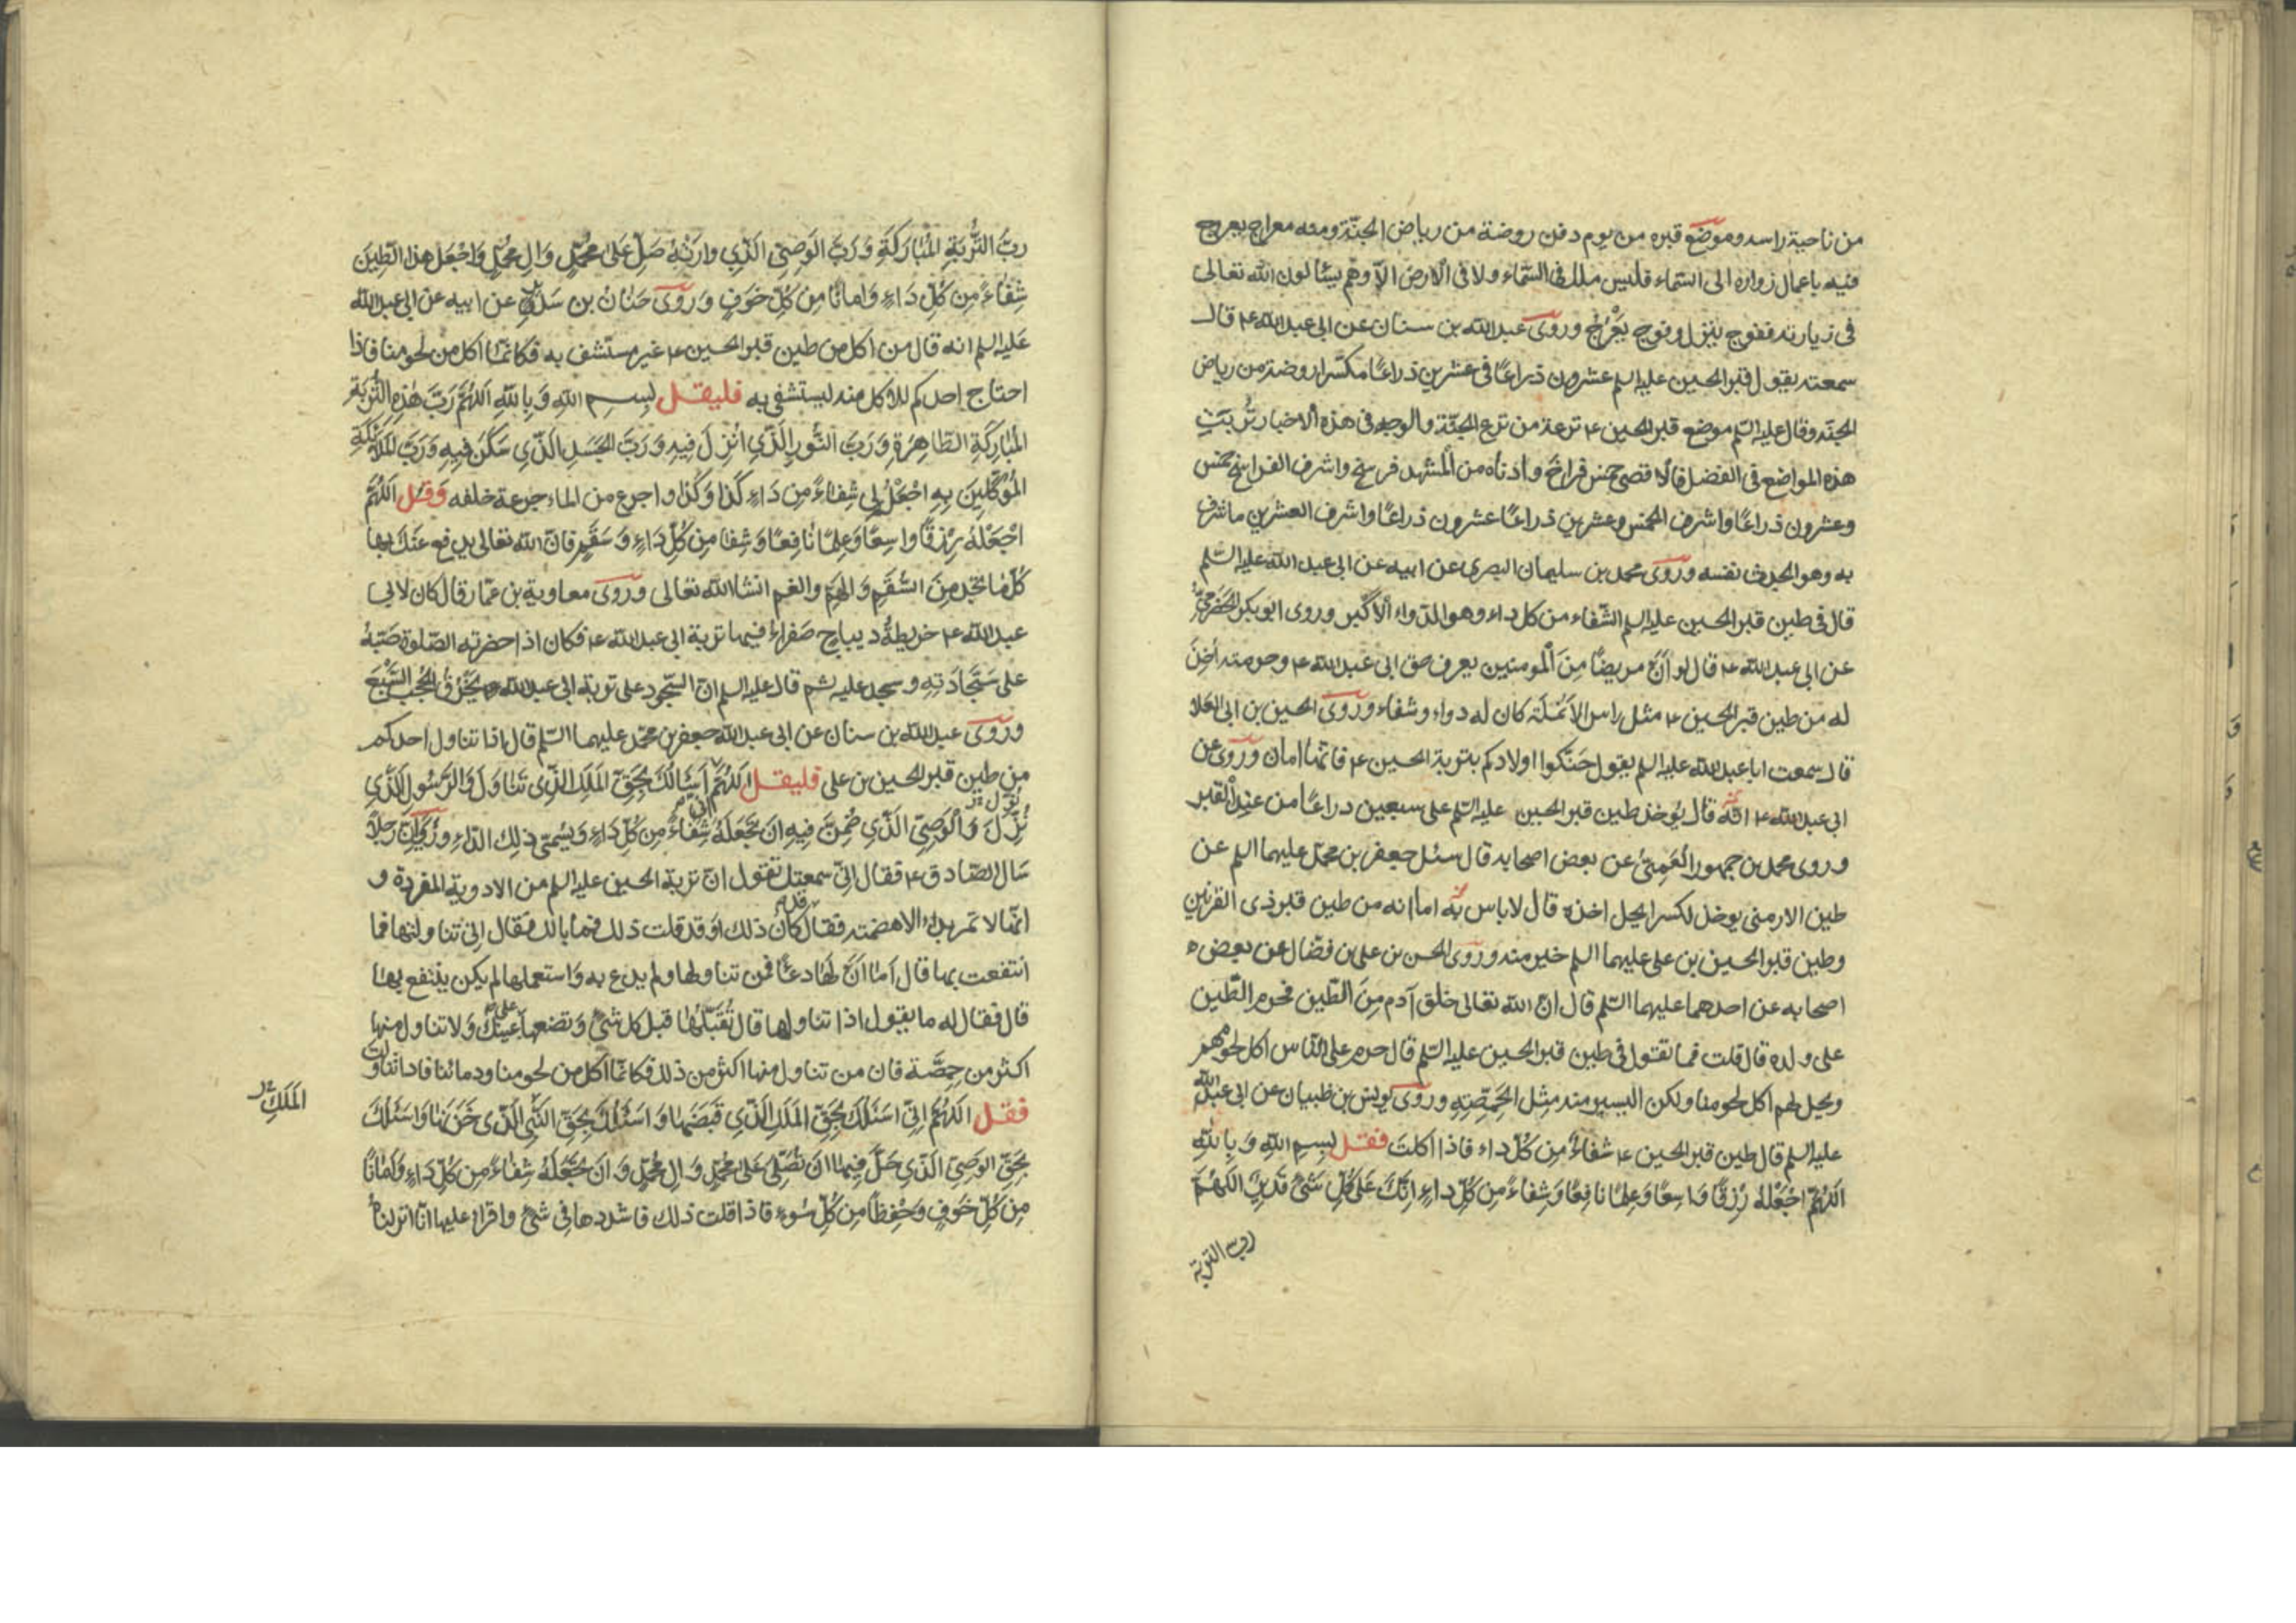 من ناحية راسه وموضع قبره من يوم دفن روضة من رياض الجنّة ومنه معراج يعرج
فيه باعمال زواره الى السّماء فليس ملك فى السّماء ولا فى الارض الاّ وهُم يسئالون الله تعالى
فى زيارته ففوج ينزل وفوج يَعْرُجُ وروىَ عبد الله بن سنان عن ابى عبد الله ع قال
سمعته يقول قبر الحسين عليه السلم عشرون ذراعًا فى عشرين ذراعًا مكسّرا روضة من رياض
الجنّه وقال عليه السّلم موضع قبر الحسين ع ترعة من ترع الجنّة والوجه فى هذه الاخبار تَرُّتبَتِ
هذه المواضع فى الفضل فالاقصى خمس فراخَ وادناه من المشهد فرسخ واشرف الفراسخ خمس
وعشرون ذراعًا واشرف الخمس وعشرين ذراعًا عشرون ذراعًا واشرف العشرين ما شرف
به وهو الجدث نفسه وروىَ محمد بن سليمان البصرى عن ابيه عن ابى عبد الله عليه السّلم
قال فى طين قبر الحسين عليه السلم الشّفاء من كل داء وهو الدّواء الاكبر وروى ابو بكر الحَضْرَمىُّ
عن ابى عبد الله ع قال لو اَنَّ مريضًا مِنَ المومنين يعرف حق ابى عبد الله ع وحرمته أخِذَ
له من طين قبر الحسين ع مثل راس الأنمُلَة كان له دواء وشفاء وروىَ الحسين بن ابى العَلا
قال سمعت ابا عبد الله عليه السلم يقول حَنّكوا اولادكم بتربة الحسين ع فانّها امان وروى عن
ابى عبد الله ع انّه قال يُؤخذ طين قبر الحسين عليه السّلم على سبعين ذراعًا من عند القبر
وروى محمد بن جمهور العَمِىّ عن بعض اصحابه قال سئل جعفر بن محمّد عليهما السلم عن
طين الارمنى يوخذ لكسر ايحل اخذه قال لا باس به اما انه من طين قبر ذى القرنين
وطين قبر الحسين بن على عليهما السلم خير منه وروىَ الحسن بن على بن فضّال عن بعض
اصحابه عن احدهما عليهما السّلم قال انّ الله تعالى خلق آدم مِنَ الطّين فحرم الطّين
على ولده قال قلت فما تقول فى طين قبر الحسين عليه السّلم قال حرم على النّاس اكل لحومهم
ويحل لهم اكل لحومنا ولكن اليسير منه مِثل الحِمّصَةِ وروىَ يونس بن ظبيان عن ابى عبد الله
عليه السلم قال طين قبر الحسين ع شفاءٌ مِن كُلّ داء فاذا اكلتَ فقل بِسمِ اللهِ وَ بِا للهِ
اَللّهُمَّ اجْعَلْهُ رِزْقًا وَاسِعًا وَعِلمًا نافِعًا وَشِفاءً مِن كُلِّ داءٍ اِنّكَ عَلى كُلِّ شَىءٍ قَديرٌ اَللّهُمَّ
ربّ التربة
ربَّ التُّربَةِ المُبارَكَةِ وَ رَبَّ الوَصِىّ الَّذي وارَتْهُ صَلِّ عَلىٰ مُحَمَّدٍ وَ الِ مُحَمَّدٍ وَاجْعَل هذا الطّينَ
شِفاءً مِن كُلِّ دَاءٍ وَ امانًا مِن كُلِّ خَوفٍ وَروىَ حَنَانُ بن سَديرٍ عن ابيه عن ابى عبد الله
عَليه السلم انه قال من اكل من طين قبر الحسين ع غير مستشف به فكانّما اكل من لحومنا فاذا
احتاج احدكم للاكل منه ليستشفى به فليقل بِسمِ اللهِ وَ بِاللهِ اَللهُمَّ رَبَّ هٰذِهِ التُّربَةِ
المُبارَكَةِ الطّاهِرَةِ وَ رَبَّ النُّورِ الَّذي اُنْزِلَ فيهِ وَ رَبَّ الجَسَدِ الَّذي سَكَنَ فيهِ وَ رَبَّ المَلائكَةِ
المُوَكَّلينَ بِهِ اجْعَلْهُ لي شِفاءً مِن دَاءِ كَذا وَ كَذا واجرع من الماء جرعة خلفه وَقل اَللهُمَّ
اجْعَلْهُ رِزقًا واسِعًا وَعِلمًا نافِعًا وَشِفا مِن كُلِّ دَاءٍ وَ سَقَمٍ فانّ الله تعالى يدفع عنك بها
كُلّ ما تجد مِنَ السُّقمِ وَ الهَمّ والغم انشا الله تعالى وروىَ معاوية بن عمّار قال كان لابى
عبد الله ع خريطة ديباج صَفراءُ فيها تربة ابى عبد الله ع فكان اذا حضرته الصّلوة صَبّهُ
على سَجّادَتِهِ وسجد عليه ثم قال عليه السلم انّ السّجود على تربة ابى عبد الله ع يَخْرُقُ الحُجُبَ السّبْعَ
وروىَ عبد الله بن سنان عن ابى عبد الله جعفر بن محمّد عليهما السّلم قال اذا تناول احدكم
من طين قبر الحسين بن على فليقل اَللهُمَّ اِنّي اَسْئالُكَ بِحَقِّ المَلَكِ الَّذي تَناوَلَ وَالرَّسُولِ الَّذي
نَزَلَ وَالوَصِىّ الَّذي ضُمِّنَ فيهِ ان تَجعَلَهُ شِفاءً مِن كُلِّ دَاءٍ وَيُسمّى ذلِك الدّاء وروىَ انّ رَجلاً
سَال الصّادق ع فقال انّى سمعتك تقول انّ تربة الحسين عليه السلم من الادوية المفردة و
انّها لا تمر بداء الا هضمته فقال قد كان ذلك او قد قلت ذلك فما بالك فقال انّى تناولتها فما
انتفعت بها قال اَما اَنّ لَها دعاً فمن تناولها ولم يدع به وَاستعملها لم يكن ينتفع بها
قال فقال له ما يقول اذا تناولها قال تُقَبّلها قبل كل شىءٍ وَتضعها على عينك وَلا تناول منها
اكثر من حِمّصَة فان من تناول منها اكثر من ذلك فكانّما اكل من لحومنا ودمائنا فاذا تناولت
فقل اَللهُمَّ اِنّي اَسئَلُكَ بِحَقِّ المَلَكِ الَّذي قَبَضَها وَ اَسئَلُكَ بِحَقِّ النَّبِىّ الَّذي خَزَنَها وَ اَسئَلُكَ
المَلَكِ
بِحَقِّ الوَصِىّ الَّذي حَلَّ فيها اَن تُصَلّى عَلىٰ مُحَمَّدٍ وَ الِ مُحَمَّدٍ وَ اَن تَجعَلَهُ شِفاءً مِن كُلِّ دَاءٍ وَ اَمانًا
مِن كُلِّ خَوفٍ وَحِفظًا مِن كُلِّ سُوءٍ فاذا قلت ذلك فاشددها فى شىءٍ واقرا عليها انّا انزلناهُ